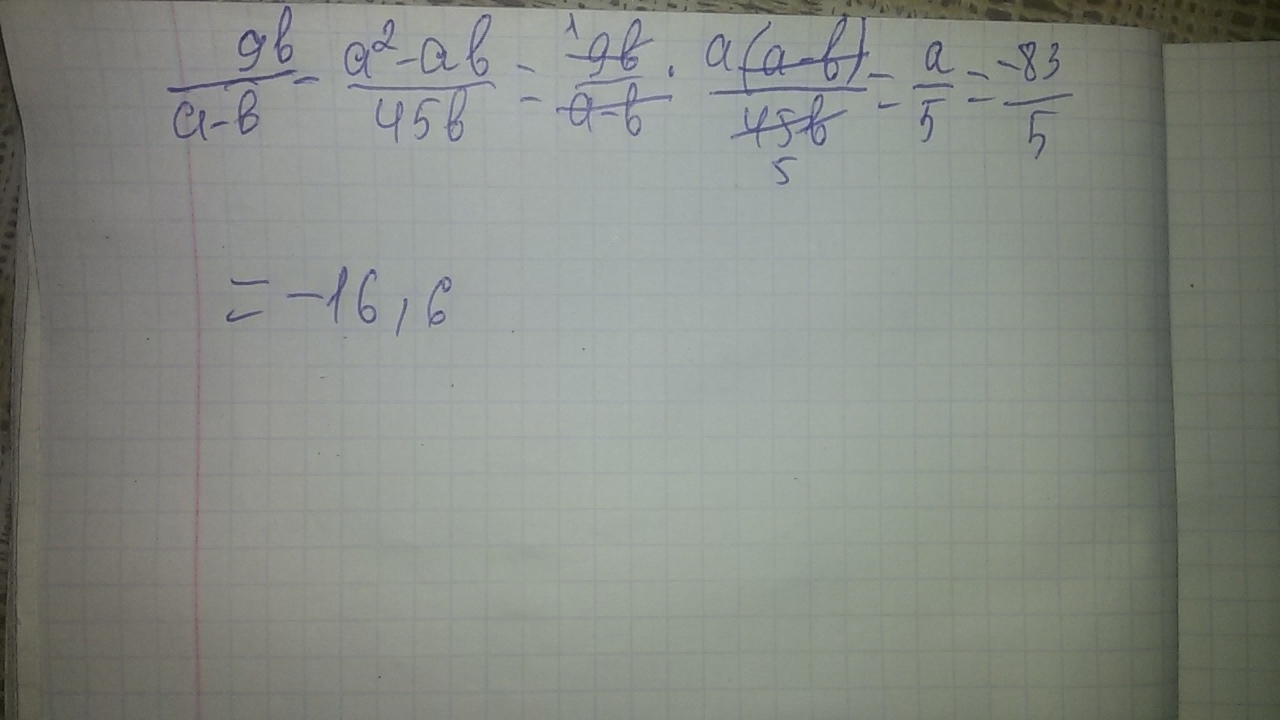 9b/(a-b) - (a²-ab)/45b = ¹9b/(a-b) · a(a-b)/45b 5 = a/5 = -83/5
= -16,6